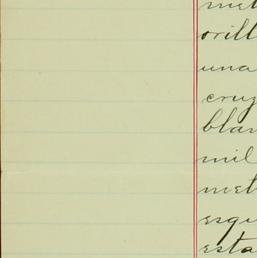 met
orill
una
cruz
blan
mil
met
esqu
esta